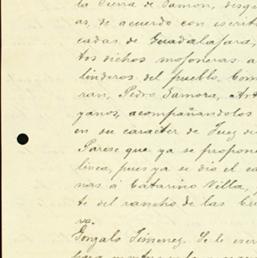 la Sierra de Damon, desgu
as, de acuerdo con escrit
cadas de Guadalajara,
tos dichos mojoneras a
linderos del pueblo. Com
ran, Pedro Zamora, Ant
yanos, acompañandolos
en su caracter de Juez de
Parese que ya se propone
linea, pues ya se dio el ca
nas á Catarino Villa,
te del rancho de las Cu
va.
Gonzalo Jimenez. Se le escri